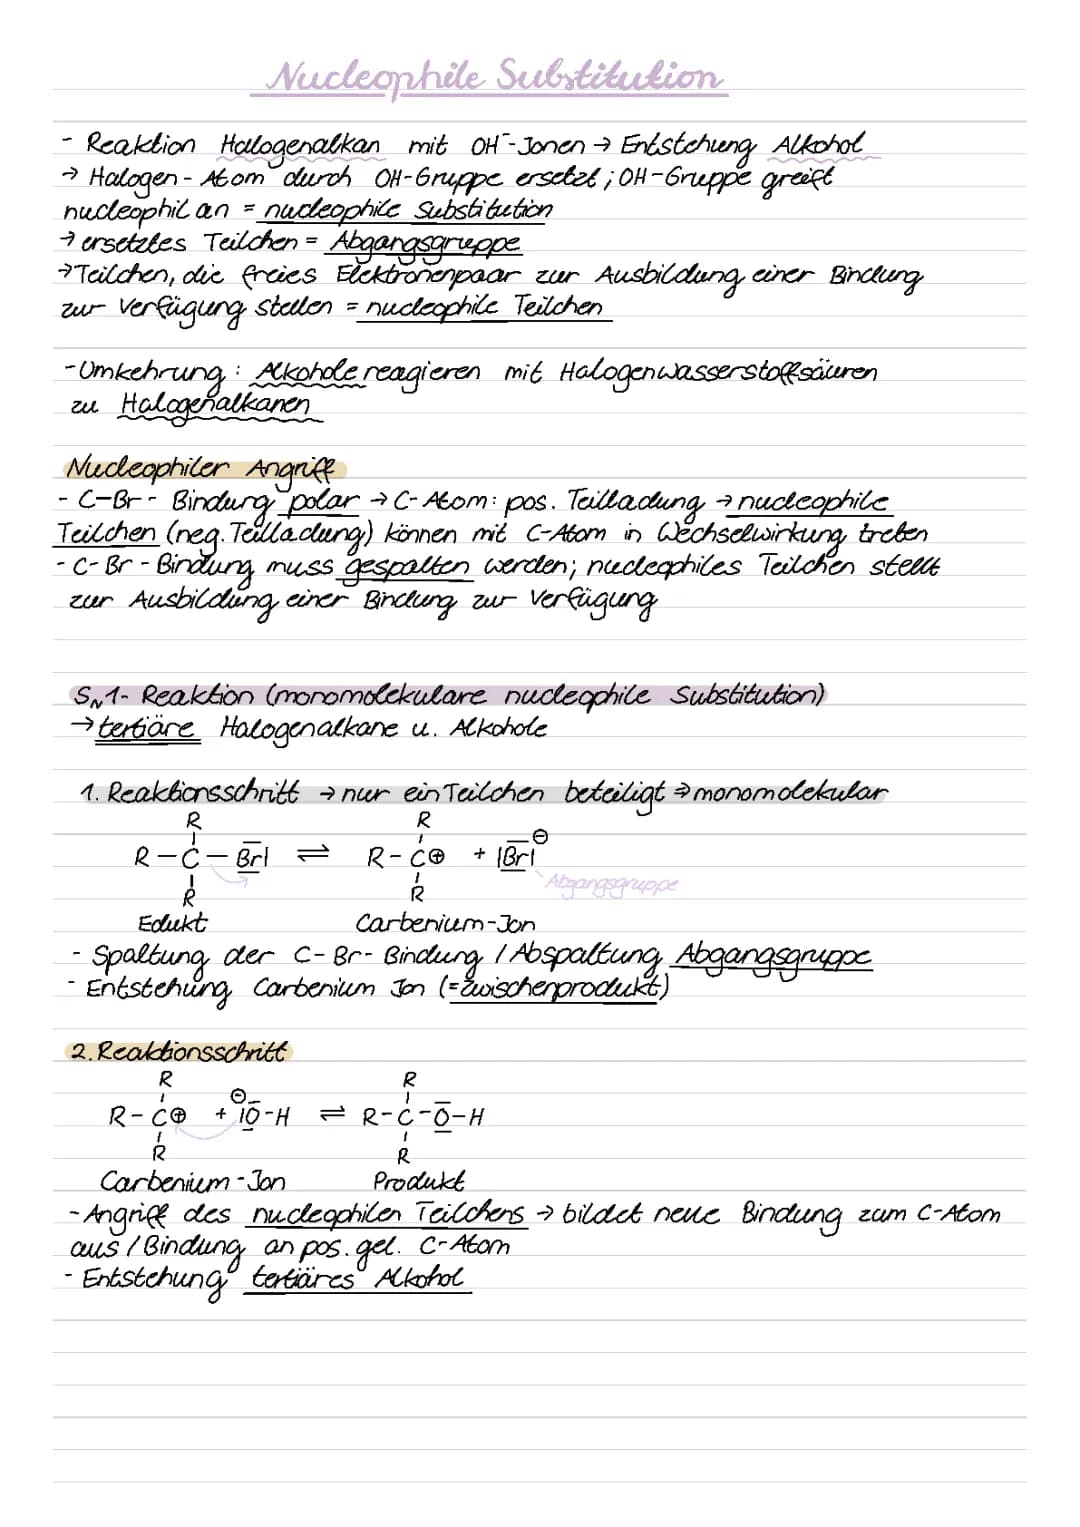 Nucleophile Substitution
- Reaktion Halogenalkan mit OH⁻-Jonen → Entstehung Alkohol
→ Halogen-Atom durch OH-Gruppe ersetzt; OH-Gruppe greift
nucleophil an = nucleophile Substitution
→ ersetztes Teilchen = Abgangsgruppe
→ Teilchen, die freies Elektronenpaar zur Ausbildung einer Bindung
zur Verfügung stellen = nucleophile Teilchen
- Umkehrung: Alkohole reagieren mit Halogenwasserstoffsäuren
zu Halogenalkanen
Nucleophiler Angriff
- C-Br- Bindung polar → C-Atom: pos. Teilladung → nucleophile
Teilchen (neg. Teilladung) können mit C-Atom in Wechselwirkung treten
- C-Br-Bindung muss gespalten werden; nucleophiles Teilchen stellt
zur Ausbildung einer Bindung zur Verfügung
SN1- Reaktion (monomolekulare nucleophile Substitution)
→ tertiäre Halogenalkane u. Alkohole
1. Reaktionsschritt → nur ein Teilchen beteiligt ⇒ monomolekular
R R
R-C-Br| ⇌ R-C⊕ + |Br|⊖
R R Abgangsgruppe
Edukt Carbenium-Jon
- Spaltung der C-Br-Bindung / Abspaltung Abgangsgruppe
- Entstehung Carbenium Jon (=Zwischenprodukt)
2. Reaktionsschritt
R R
R-C⊕ + ⊖|O-H ⇌ R-C-O-H
R R
Carbenium-Jon Produkt
- Angriff des nucleophilen Teilchens → bildet neue Bindung zum C-Atom
aus / Bindung an pos. gel. C-Atom
- Entstehung tertiäres Alkohol